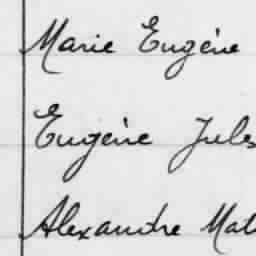 Marie Eugène
Eugène Jules
Alexandre